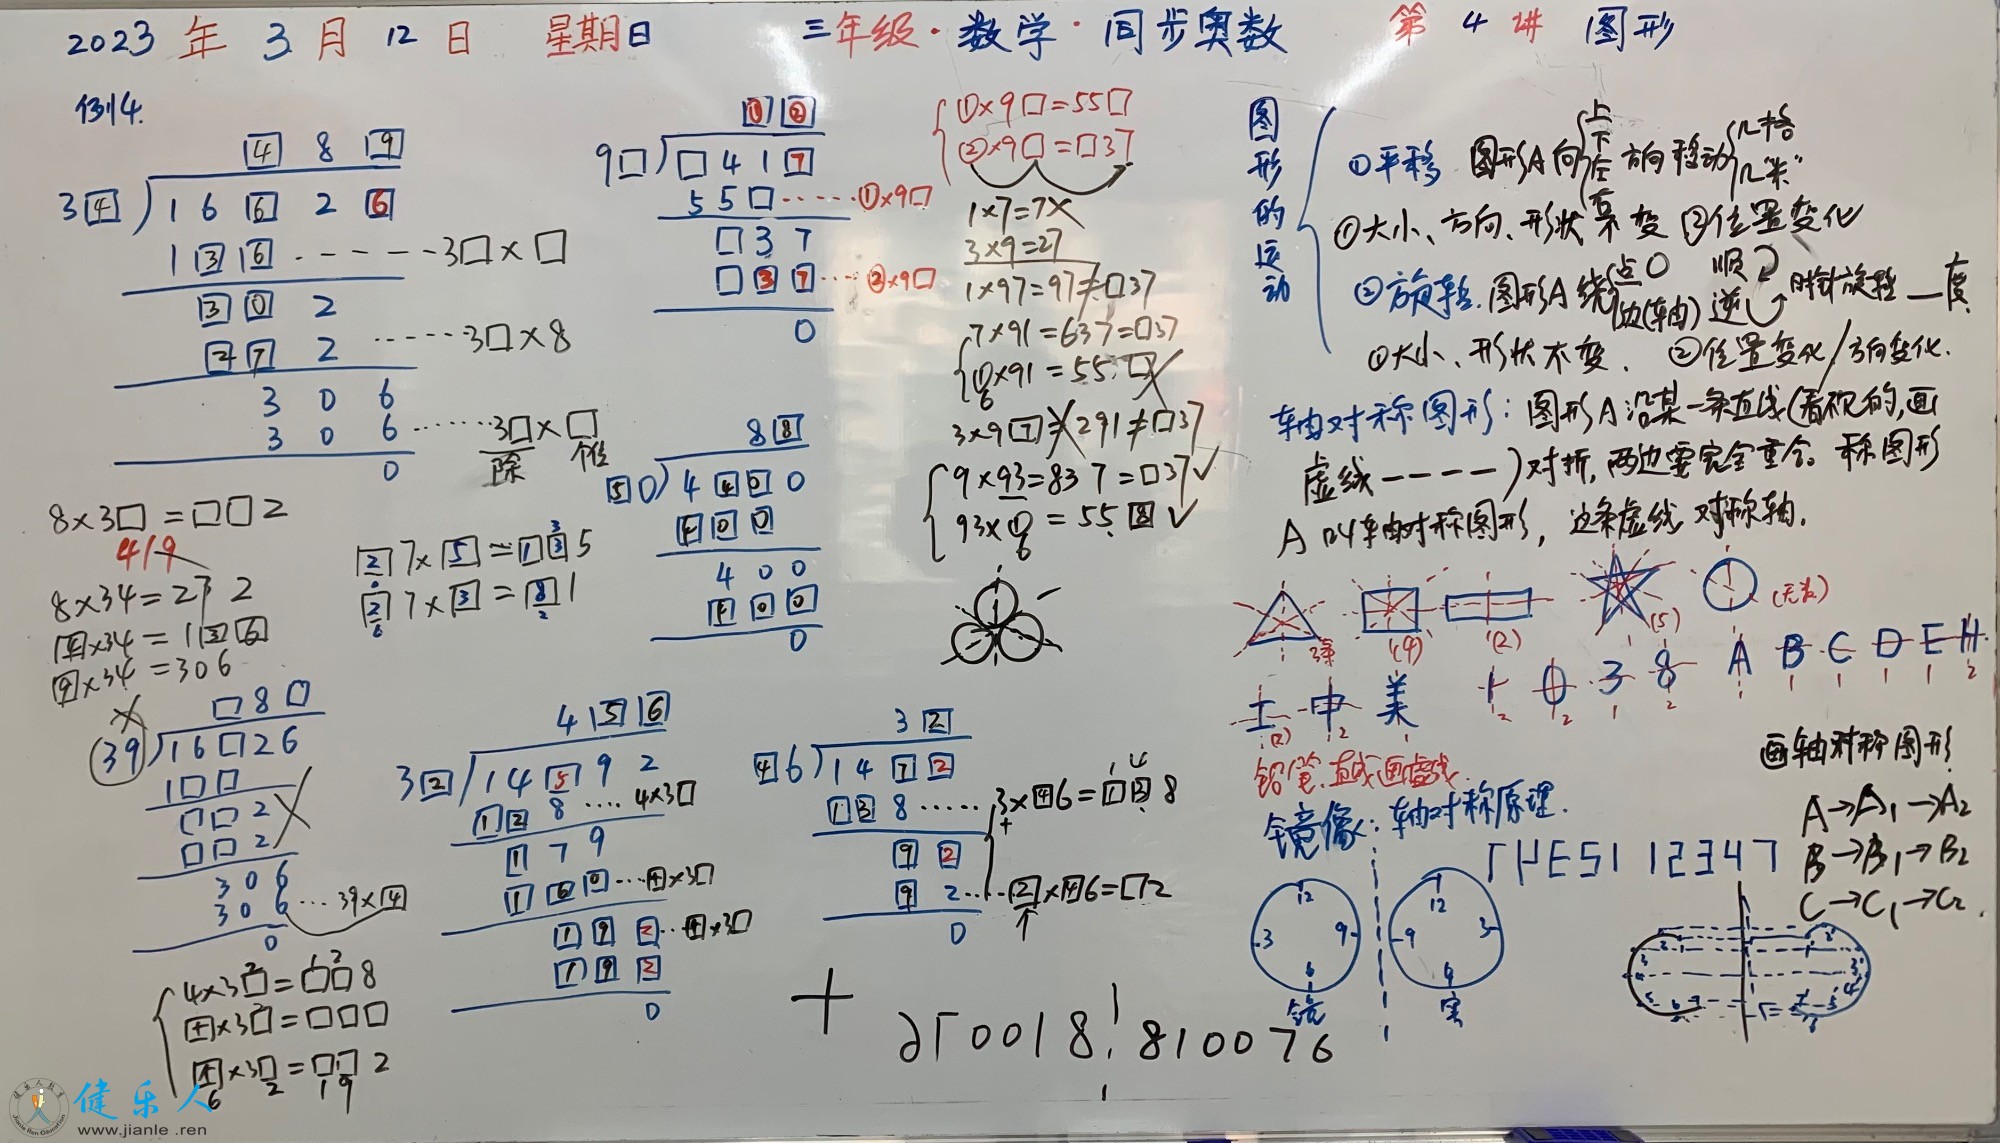 2023 年 3 月 12 日 星期日 三年级·数学·同步奥数 第 4 讲 图形
例4.
4 8 9
34 ) 1 6 6 2 6
1 3 6 ------3□×□
3 0 2
2 7 2 ······3□×8
3 0 6
3 0 6 ······3□×□
除
0
8×3□=□□2
4/9
8×34=272
4×34=136
9×34=306
27×5=135
27×3=81
□8□
39 ) 16□26
1□□
□□2
□□2
306
306 ···39×4
0
4×3□=□□8
4×3□=□□□
4×3□=□□2
6 2 1 9
① ②
9□ ) □ 4 1 7
5 5 □ ······①×9□
□ 3 7
□ 3 7 ···②×9□
0
8 8
50 ) 4 4 0 0
4 0 0
4 0 0
4 0 0
0
4 5 6
32 ) 14 5 9 2
1 2 8 ····4×3□
1 7 9
1 6 0 ···4×3□
1 9 2 ··4×3□
1 9 2
0
3 2
46 ) 14 7 2
1 3 8 ······3×46=1 3 8
9 2
9 2 ···2×46=□2
0
①×9□=55□
②×9□=□37
1×7=7×
3×9=27
1×97=97≠□37
7×91=637=□37
①×91=55□
6
3×97≠291≠□37
9×93=837=□37✓
93×①=558✓
6
图形的运动
①平移 图形A向 上 下 左 右 方向移动 几格 几"米"
①大小、方向、形状不变 ②位置变化
②旋转.图形A绕 点O 边(轴) 顺 逆 时针旋转__度
①大小、形状不变. ②位置变化/方向变化.
轴对称图形:图形A沿某一条直线(看不见的,画
虚线----)对折,两边要完全重合。称图形
A叫轴对称图形,这条虚线 对称轴.
3条 (4) (2) (5) (无数)
土 中 美 1 0 3 8 A B C D E H
(2) 2 1 2 2 1 2 1 1 1 1 1 2
铅笔.直线画虚线.
画轴对称图形
镜像:轴对称原理.
A→A₁→A₂
B→B₁→B₂
C→C₁→C₂.
12 3 9 6
镜
12 9 3 6
实
810076
健乐人
www.jianle.ren